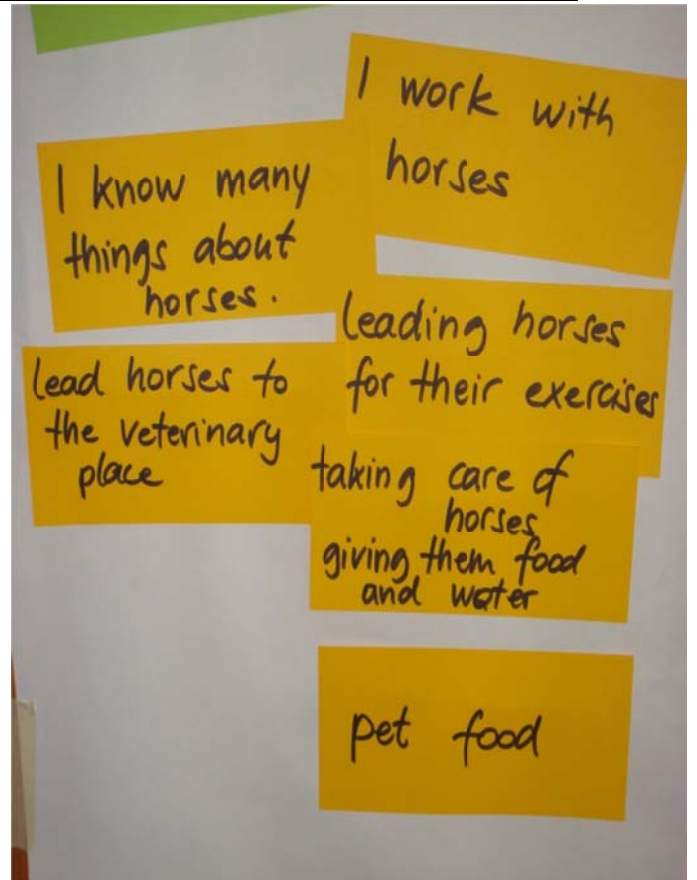 I work with
horses
I know many
things about
horses.
leading horses
for their exercises
lead horses to
the veterinary
place
taking care of
horses
giving them food
and water
pet food